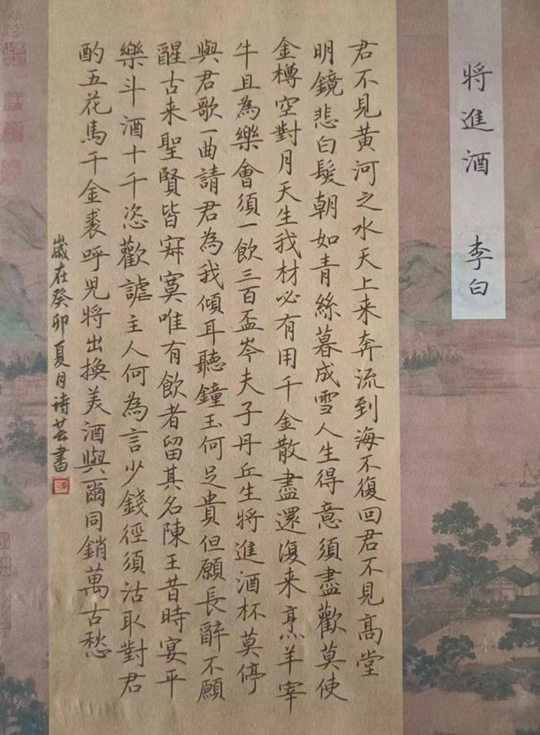 將進酒 李白
君不見黃河之水天上来奔流到海不復回君不見高堂
明鏡悲白髮朝如青絲暮成雪人生得意須盡歡莫使
金樽空對月天生我材必有用千金散盡還復来烹羊宰
牛且為樂會須一飲三百盃岑夫子丹丘生將進酒杯莫停
與君歌一曲請君為我傾耳聽鐘玉何足貴但願長醉不願
醒古来聖賢皆寂寞唯有飲者留其名陳王昔時宴平
樂斗酒十千恣歡謔主人何為言少錢徑須沽取對君
酌五花馬千金裘呼兒將出換美酒與爾同銷萬古愁
歲在癸卯夏月诗芸書